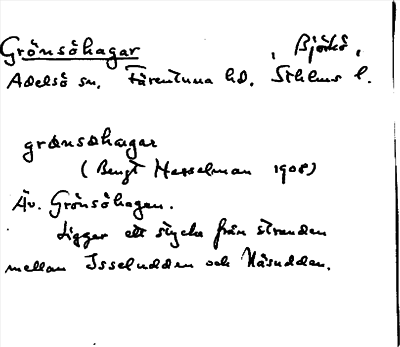 Grönsöhagar , Björkö,
Adelsö sn. Färentuna hd. Sthlms l.
grønsøhagar
(Bengt Hesselman 1908)
Äv. Grönsöhagen.
Ligger ett stycke från stranden
mellan Isseludden och Näsudden.